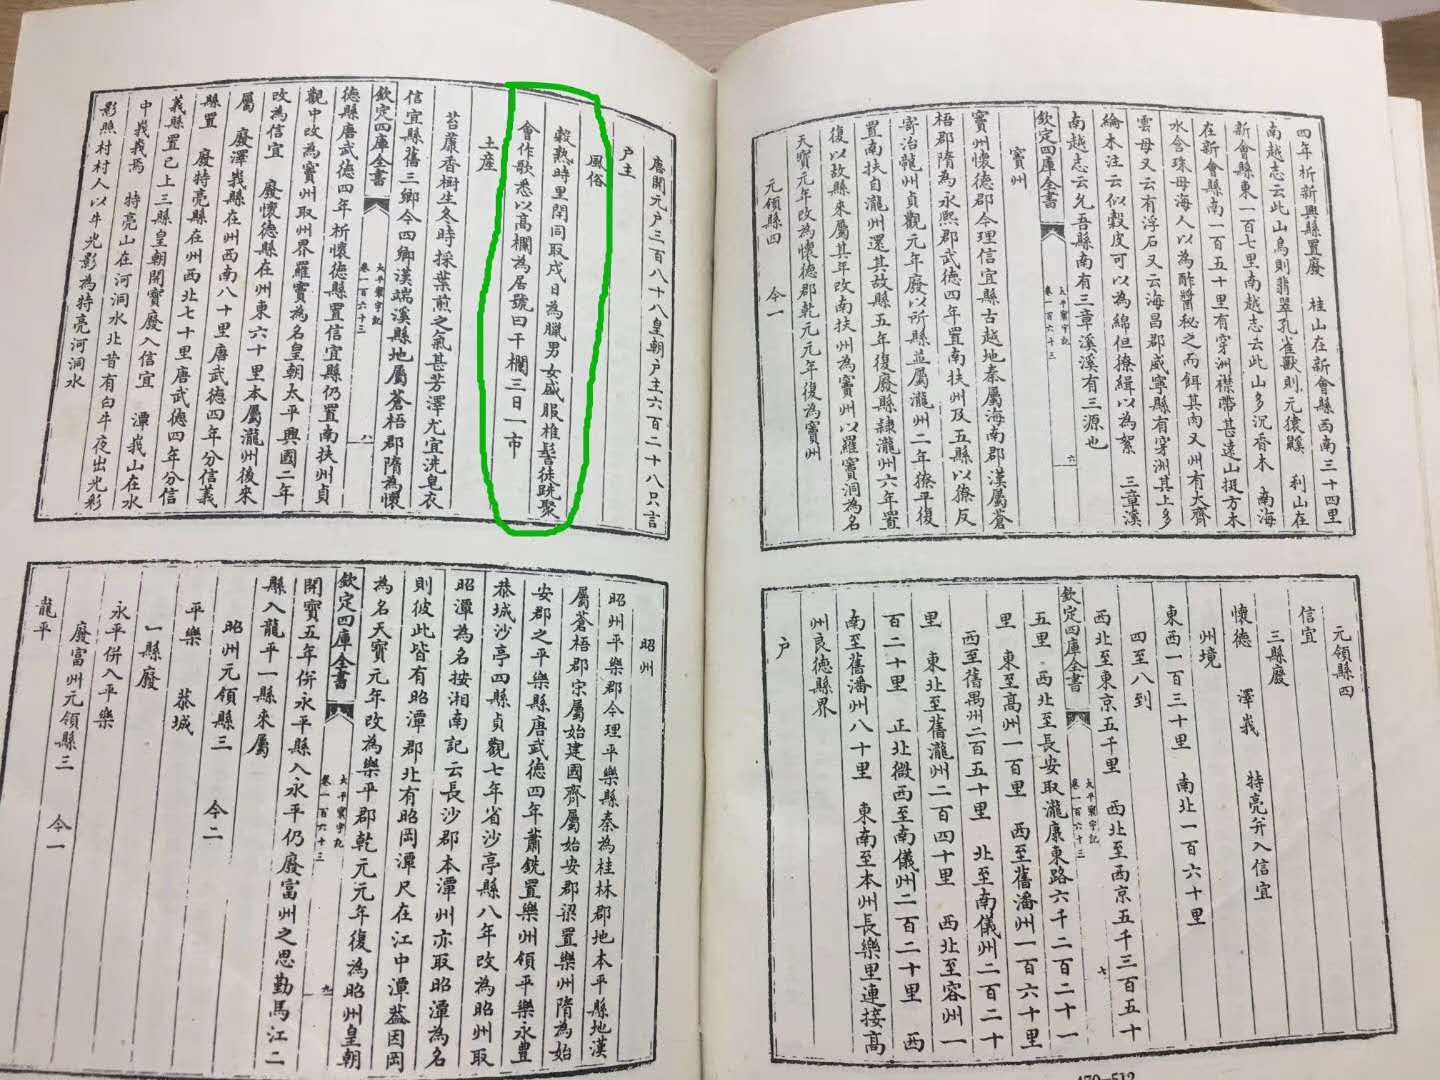 四年析新興縣置廢　桂山在新會縣西南三十四里
南越志云此山鳥則翡翠孔雀獸則元猿鼷　利山在
新會縣東一百七里南越志云此山多沉香木　南海
在新會縣南一百五十里有穿洲襟帶甚遠山挺方木
水含珠母海人以為酢醬秘之而餌其肉又州有大齊
雲母又云有浮石又云海昌郡威寧縣有穿洲其上多
綸木注云似穀皮可以為綿但獠緝以為絮　三章溪
南越志云允吾縣南有三章溪溪有三源也
欽定四庫全書　太平寰宇記　卷一百六十三　六
竇州
竇州懷德郡今理信宜縣古越地秦屬海南郡漢屬蒼
梧郡隋為永熙郡武德四年置南扶州及五縣以獠反
寄治瀧州貞觀元年廢以所縣並屬瀧州二年獠平復
置南扶自瀧州還其故縣五年復廢縣隸瀧州六年置
復以故縣來屬其年改南扶州為竇州以羅竇洞為名
天寶元年改為懷德郡乾元元年復為竇州
元領縣四　今一
元領縣四
信宜
三縣廢
懷德　潭峩　特亮并入信宜
州境
東西一百三十里　南北一百六十里
四至八到
西北至東京五千里　西北至西京五千三百五十
欽定四庫全書　太平寰宇記　卷一百六十三　七
五里　西北至長安取瀧康東路六千二百二十一
里　東至高州一百里　西至舊潘州一百六十里
西至舊禺州二百五十里　北至南儀州二百二十
里　東北至舊瀧州二百四十里　西北至容州一
百二十里　正北微西至南儀州二百二十里　西
南至舊潘州八十里　東南至本州長樂里連接高
州良德縣界
戶
470—512
唐開元戶三百八十八皇朝戶主六百二十八只言
戶主
風俗
穀熟時里閈同取戌日為臘男女盛服椎髻徒跣聚
會作歌悉以高欄為居號曰干欄三日一市
土産
苔藘香樹生冬時採葉煎之氣甚芳澤尤宜洗皂衣
信宜縣舊三鄉今四鄉漢端溪縣地屬蒼梧郡隋為懷
欽定四庫全書　太平寰宇記　卷一百六十三　八
德縣唐武德四年析懷德縣置信宜縣仍置南扶州貞
觀中改為竇州取州界羅竇為名皇朝太平興國二年
改為信宜　廢懷德縣在州東六十里本屬瀧州後來
屬　廢潭峩縣在州西南八十里唐武德四年分信義
縣置　廢特亮縣在州西北七十里唐武德四年分信
義縣置已上三縣皇朝開寶廢入信宜　潭峩山在水
中峩峩焉　特亮山在河洞水北昔有白牛夜出光彩
影照村村人以牛光影為特亮河洞水
昭州
昭州平樂郡今理平樂縣秦為桂林郡地本平縣地漢
屬蒼梧郡宗屬始建國齊屬始安郡梁置樂州隋為始
安郡之平樂縣唐武德四年蕭銑置樂州領平樂永豐
恭城沙亭四縣貞觀七年省沙亭縣八年改為昭州取
昭潭為名按湘南記云長沙郡本潭州亦取昭潭為名
則彼此皆有昭潭郡北有昭岡潭尺在江中潭蓋因岡
為名天寶元年改為樂平郡乾元元年復為昭州皇朝
欽定四庫全書　太平寰宇記　卷一百六十三　九
開寶五年併永平縣入永平仍廢富州之思勤馬江二
縣入龍平一縣來屬
昭州元領縣三　今二
平樂　恭城
一縣廢
永平併入平樂
廢富州元領縣三　今一
龍平